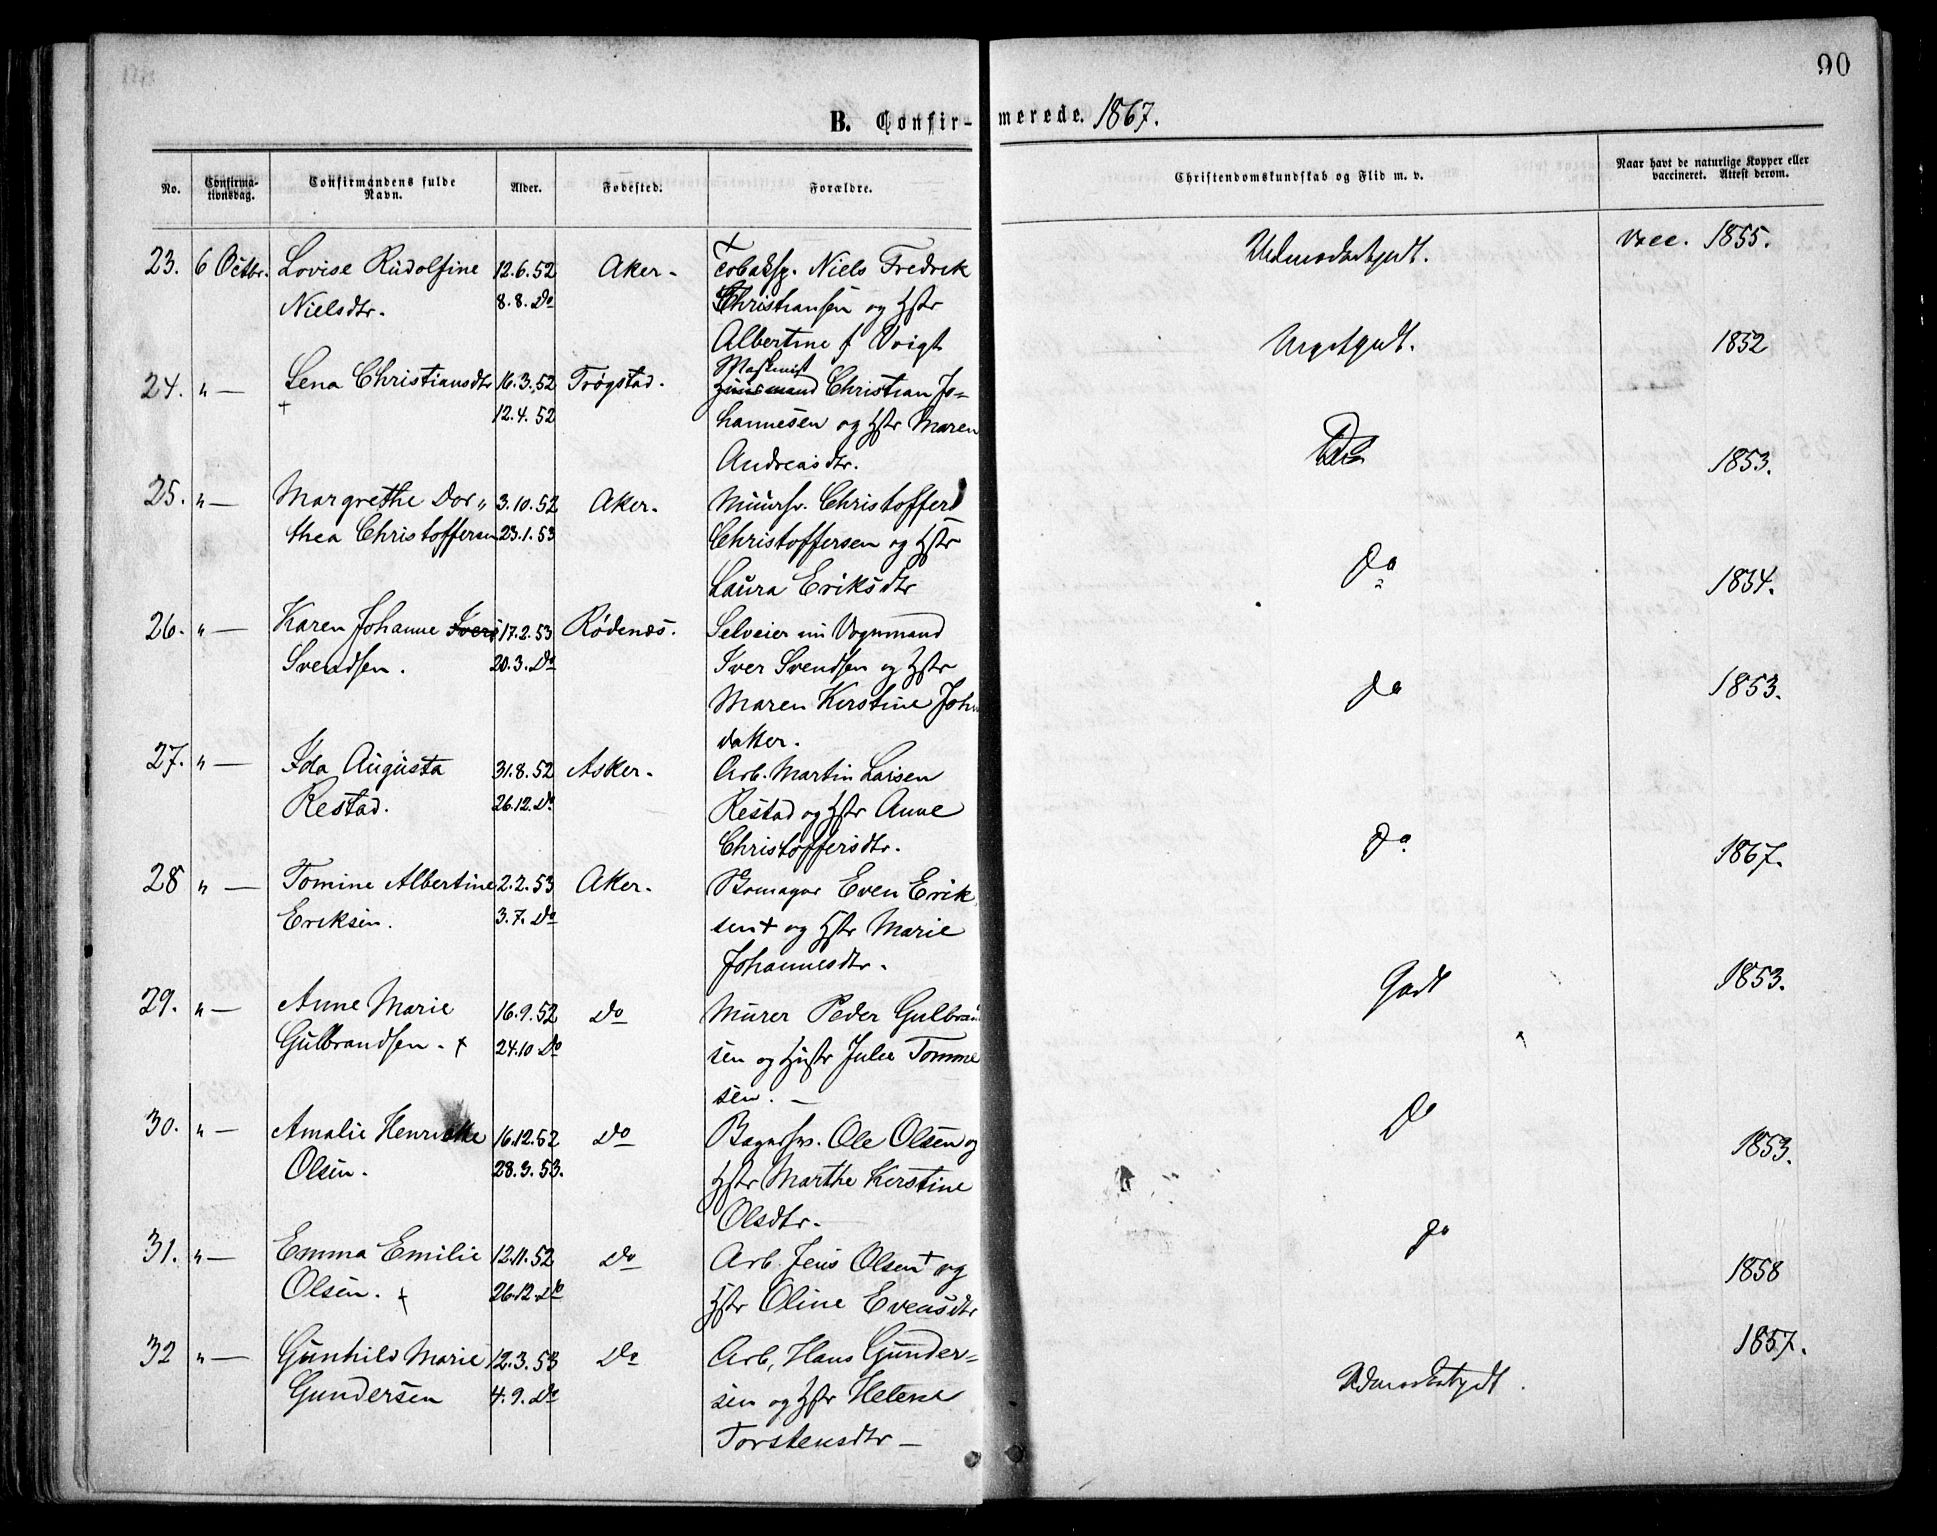 90
B. Confir- merede. 1867.
No. Confirma-tionsdag. Confirmandens fulde Navn. Alder. Fødested. Forældre. Christendomskundskab og Flid m. v. Naar havt de naturlige Kopper eller vaccineret. Attest derom.
23. 6 Octbr. Lovise Rudolfine 12.6.52 Aker. Tobaksp. Niels Fredrik vacc. 1855.
Nielsdtr. 8.8. Do Christiansen og Hstr
Albertine f Voigt
24. " — Lena Christiansdtr 16.3.52 Trøgstad. Maskinist 1852
+ 12.4.52 Huusmand Christian Jo=
hannesen og Hstr Maren
Andreasdtr.
25. " — Margrethe Dor„ 3.10.52 Aker. Muursv. Christoffer Do 1853.
thea Christoffersen 23.1.53 Christoffersen og Hstr
Laura Eriksdtr
26. " — Karen Johanne Ivers 17.2.53 Rødenæs. Selveier nu Vognmand Do 1854.
Svendsen. 20.3. Do Iver Svendsen og Hstr
Maren Kirstine Johns
datter.
27. " — Ida Augusta 31.8.52 Asker. Arb. Martin Larsen Do 1853.
Restad. 26.12. Do Restad og Hstr Anne
Christoffersdtr.
28 " — Tomine Albertine 2.2.53 Aker. Skomager Even Erik Do 1867.
Eriksen. 3.7. Do sen + og Hstr Marie
Johannesdtr.
29. " — Anne Marie 16.9.52 Do Murer Peder Gulbran Godt 1853.
Gulbrandsen. + 24.10 Do sen og Hustr Julie Tomme
sen. —
30. " — Amalie Henriette 16.12.52 Do Bagersv. Ole Olsen og Do 1853.
Olsen. 28.3.53. Hstr Marthe Kirstine
Olsdtr.
31. " — Emma Emilie 12.11.52 Do Arb. Jens Olsen + og Do 1858
Olsen. + 26.12. Do Hstr Oline Evensdtr
32 " — Gunhild Marie 12.3.53 Do Arb. Hans Gunder= Udmærketgodt. 1857.
Gundersen 4.9. Do sen og Hstr Helene
Torstensdtr —